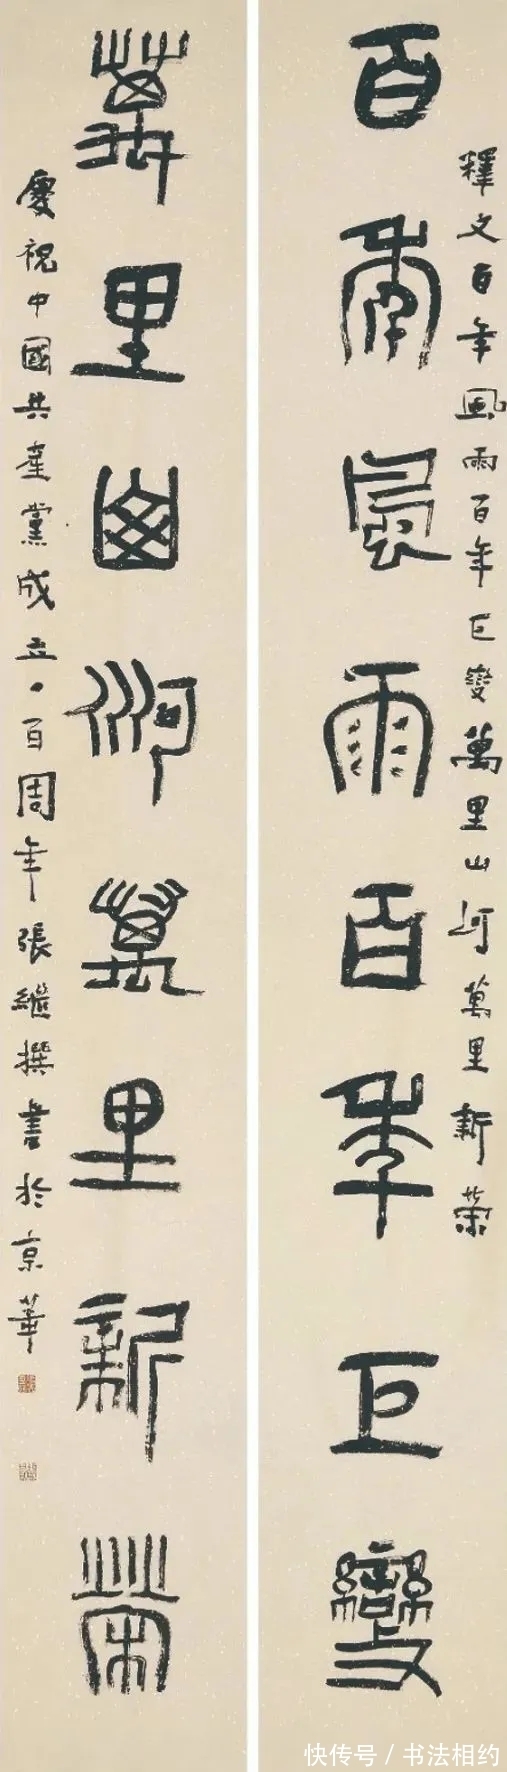 釋文百年風雨百年巨變萬里山河萬里新榮
百年風雨百年巨變
萬里山河萬里新榮
慶祝中國共產黨成立一百周年張繼撰書於京華
快传号 / 书法相约